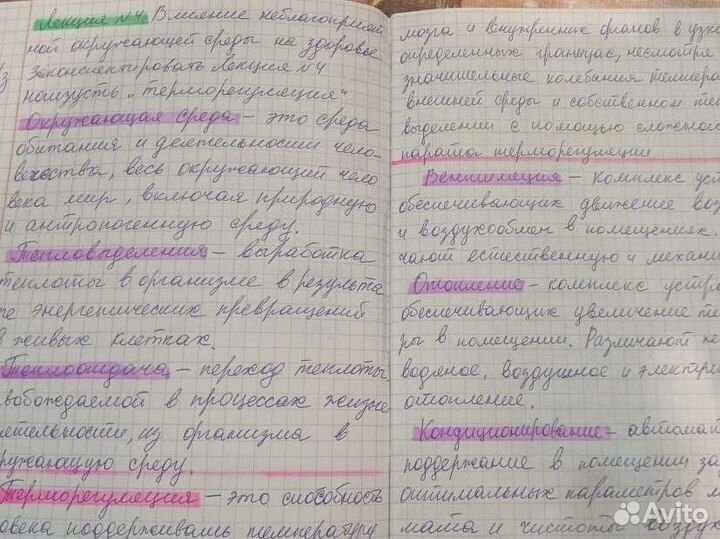 Лекция №4. Влияние неблагоприят
ной окружающей среды на здоровье
законспектировать Лекция №4
наизусть "терморегуляция"
Окружающая среда – это среда
обитания и деятельности чело-
вечества, весь окружающий чело
века мир, включая природную
и антропогенную среду.
Тепловыделения – выработка
теплоты в организме в результа
те энергетических превращений
в живых клетках.
Теплоотдача – переход теплоты,
вобождаемой в процессах жизне
ятельности, из организма в
ружающую среду.
Терморегуляция – это способность
овека поддерживать температуру
мозга и внутренних органов в узки
определенных границах, несмотря
значительные колебания темпера
внешней среды и собственном теп
выделении с помощью сложного
парата терморегуляции
Вентиляция – комплекс уст
обеспечивающих движение воз
и воздухообмен в помещениях.
чают естественную и механи
Отопление – комплекс устр
обеспечивающих увеличение те
ры в помещении. Различают
водяное, воздушное и электри
отопление.
Кондиционирование – автомат
поддержание в помещении за
оптимальных параметров м
мата и чистоты воздух
Avito